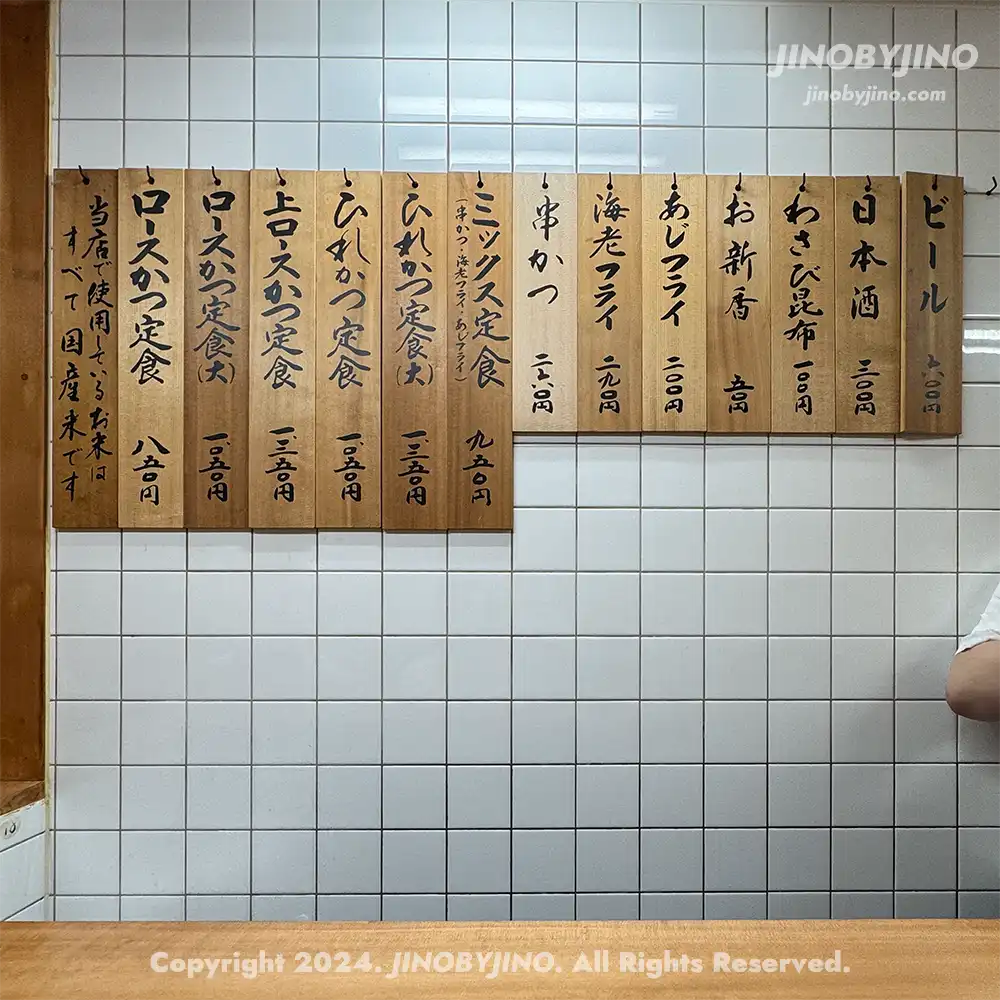 JINOBYJINO
jinobyjino.com
ビール 六〇〇円
日本酒 三〇〇円
わさび昆布 一〇〇円
お新香 五〇円
あじフライ 二〇〇円
海老フライ 二九〇円
串かつ 二六〇円
ミックス定食 九五〇円
(串かつ・海老フライ・あじフライ)
ひれかつ定食(大) 一、三五〇円
ひれかつ定食 一、〇五〇円
上ロースかつ定食 一、三五〇円
ロースかつ定食(大) 一、〇五〇円
ロースかつ定食 八五〇円
当店で使用しているお米は
すべて国産米です
Copyright 2024. JINOBYJINO. All Rights Reserved.